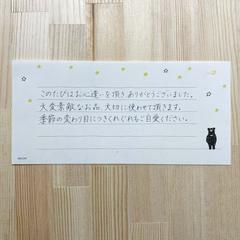 このたびはお心遣いを頂きありがとうございました。
大変素敵なお品、大切に使わせて頂きます。
季節の変わり目につきくれぐれもご自愛ください。